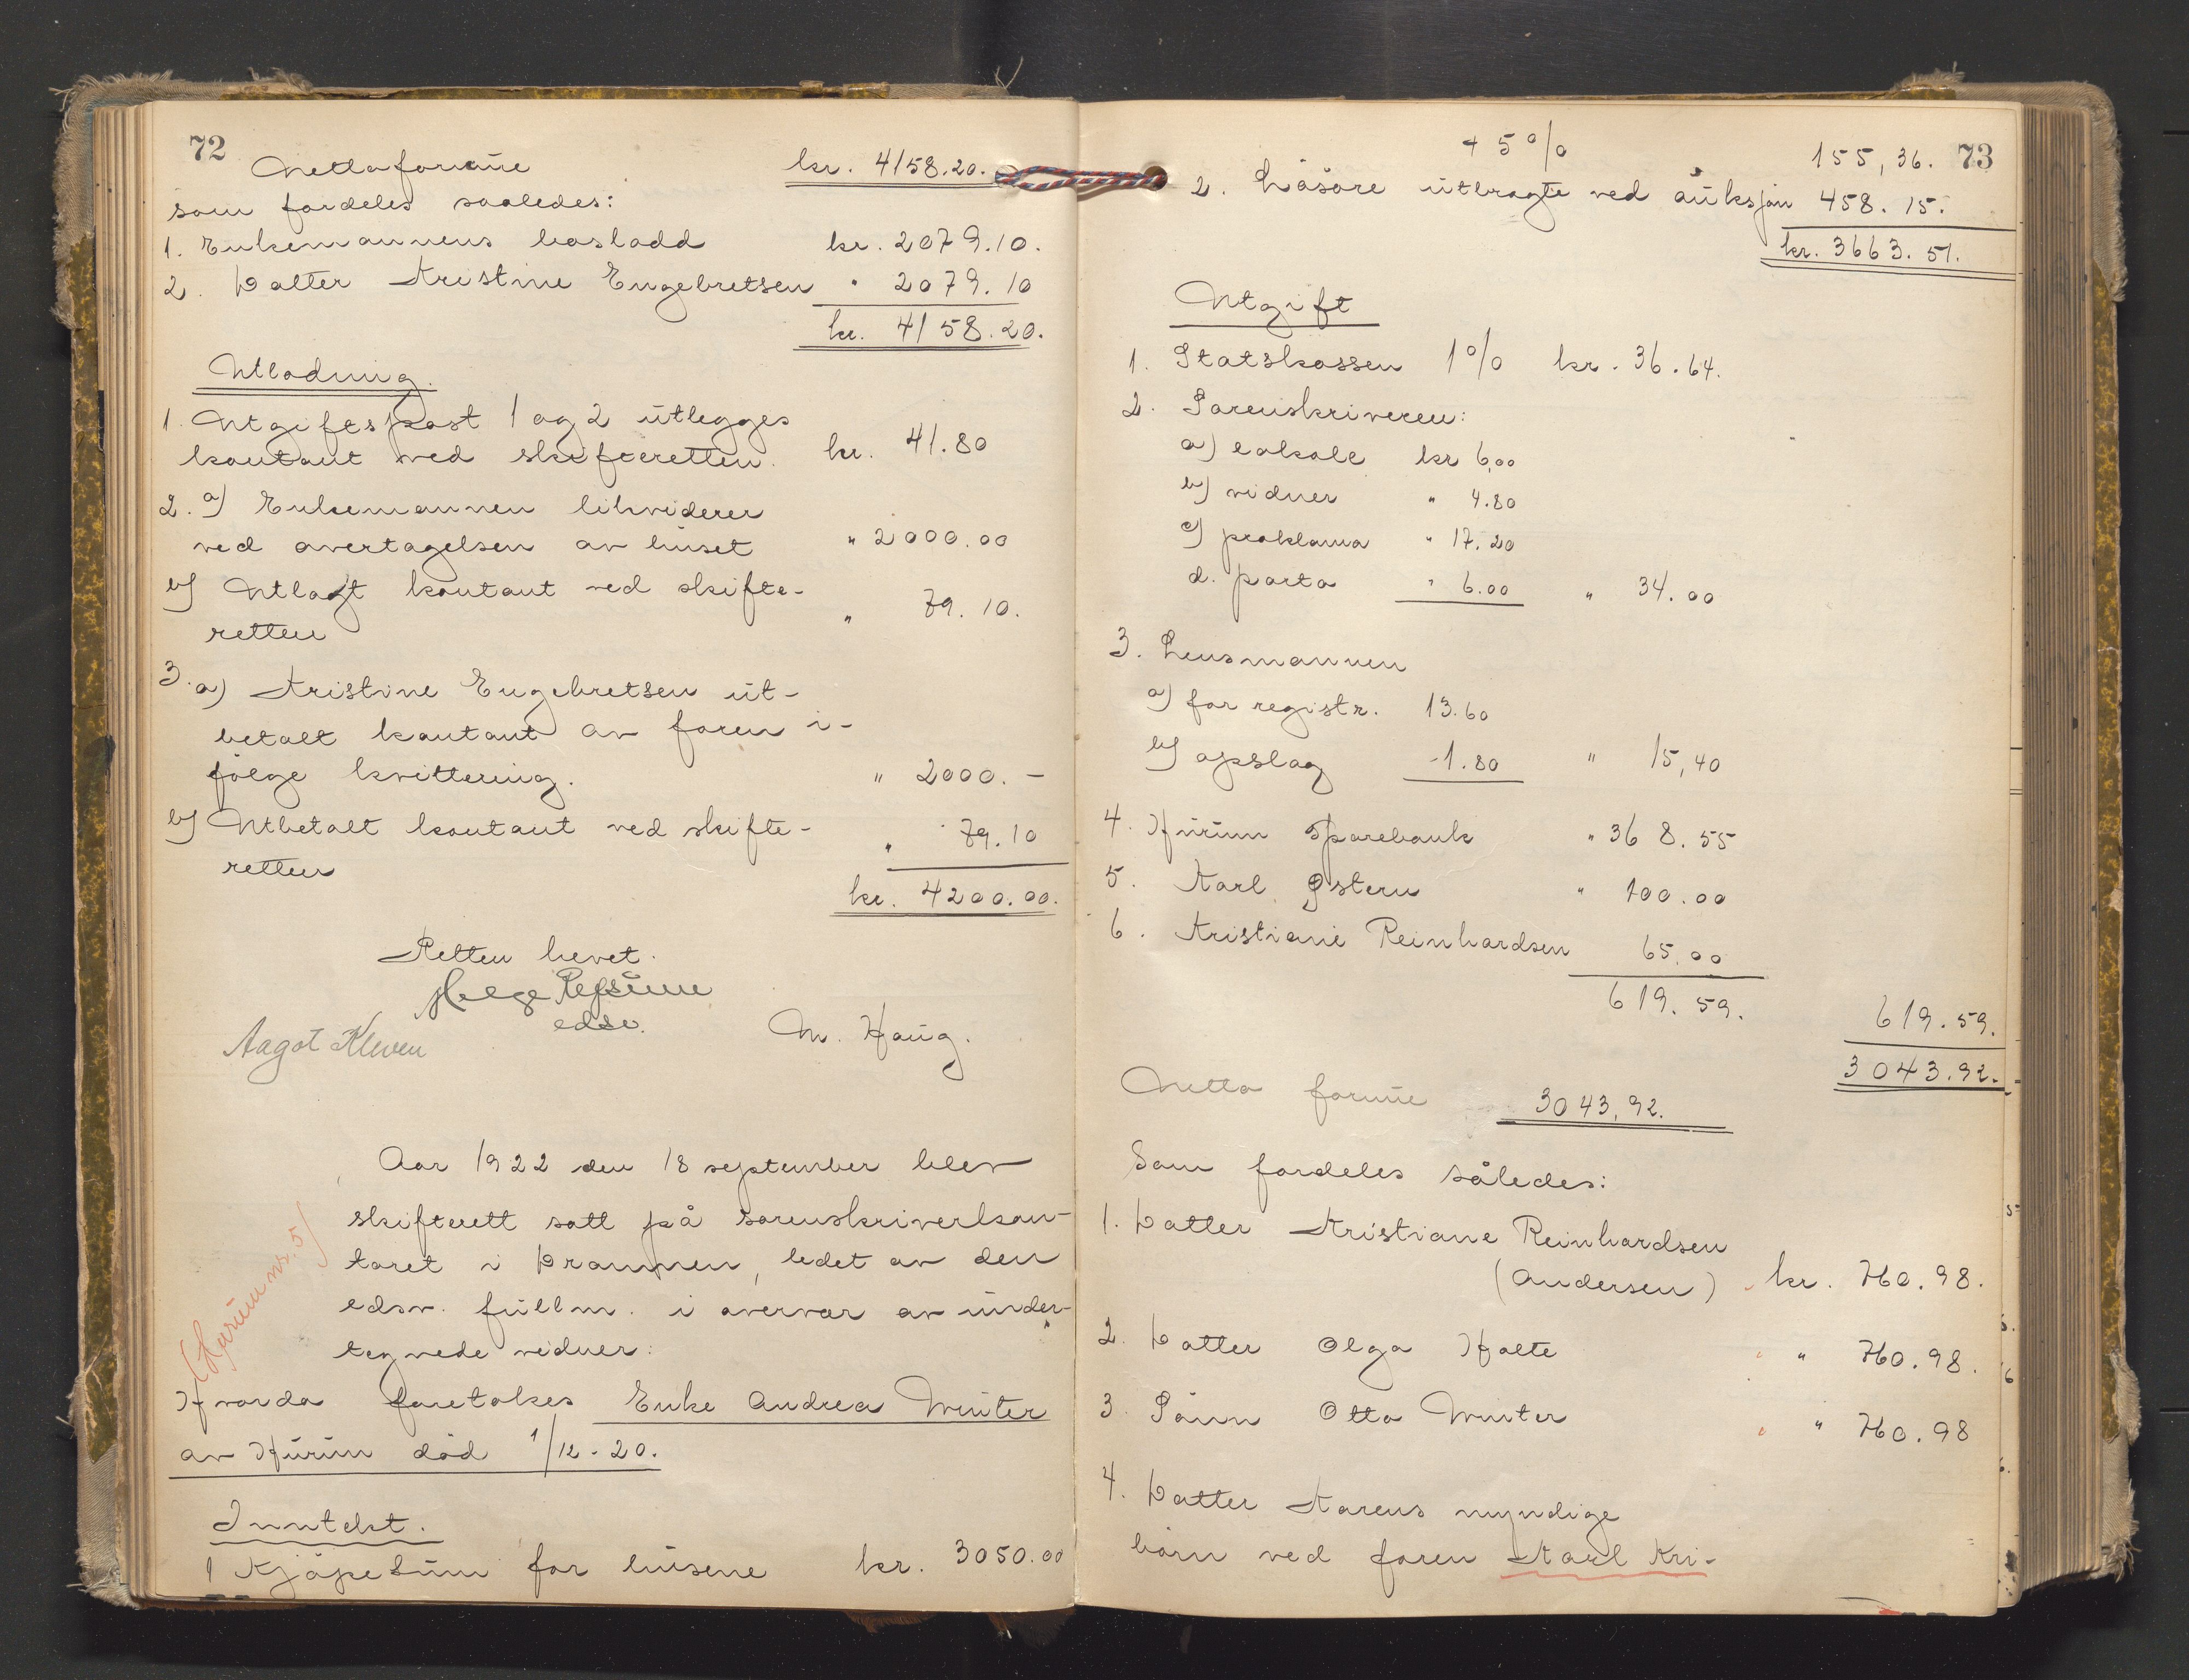 72
Nettoformue kr. 4158.20.
som fordeles saaledes:
1. Enkemannens boslodd kr. 2079.10.
2. Datter Kristine Engebretsen " 2079.10
kr. 4158.20.
Utlodning.
1. Utgiftspost 1 og 2 utlegges
kontant ved skifteretten. kr. 41.80
2. a) Enkemannen likviderer
ved overtagelsen av huset " 2000.00
b) Utlagt kontant ved skifte-
retten " 79.10.
3. a) Kristine Engebretsen ut-
betalt kontant av faren i-
følge kvittering. " 2000.-
b) Utbetalt kontant ved skifte-
retten " 79.10
kr. 4200.00.
Retten hevet.
Helge Refsum
edsv.
Aagot Kleven M. Haug.
Aar 1922 den 18 september blev
skifterett satt på sorenskriverkon-
toret i Drammen, ledet av den
edsv. fullm. i overvær av under-
tegnede vidner:
(Hurum nr. 5)
Hvorda foretokes Enke Andrea Winter
av Hurum død 1/12-20.
Inntekt.
1 Kjøpesum for husene kr. 3050.00
73
+ 5 % 155,36.
2. Løsøre utbragte ved auksjon 458.15.
kr. 3663.51.
Utgift
1. Statskassen 1 % kr. 36.64.
2. Sorenskriveren:
a) lokale kr 6,00
b) vidner " 4.80
c) proklama " 17.20
d. porto " 6.00 " 34.00
3. Lensmannen
a) for registr. 13.60
b) opslag -1.80 " 15,40
4. Hurum Sparebank " 368.55
5. Karl Østern " 100.00
6. Kristiane Reinhardsen 65,00
619.59. 619.59.
3043.92.
Netto formue 3043,92.
Som fordeles således:
1. Datter Kristiane Reinhardsen
(Andersen) kr. 760.98.
2. Datter Olga Holte " 760.98.
3. Sønn Otto Winter " 760.98
4. Datter Karens myndige
børn ved faren Karl Kri-